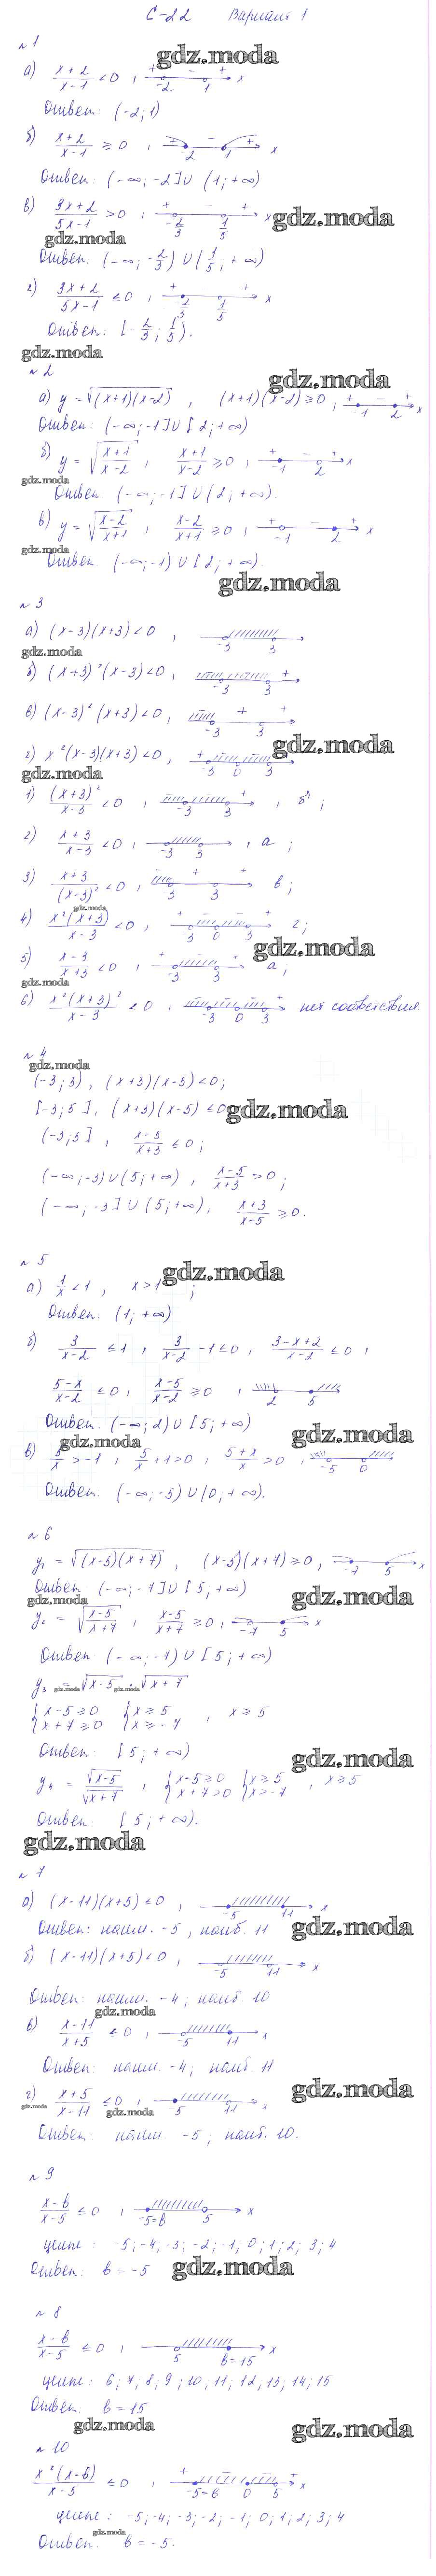 С-22 Вариант 1
gdz.moda
№1
а) (x+2)/(x-1) < 0, + - + -2 1 x
Ответ: (-2; 1)
б) (x+2)/(x-1) ≥ 0, + - + -2 1 x
Ответ: (-∞; -2] ∪ (1; +∞)
в) (3x+2)/(5x-1) > 0, + - + -2/3 1/5 x
gdz.moda
gdz.moda
Ответ: (-∞; -2/3) ∪ (1/5; +∞)
г) (3x+2)/(5x-1) ≤ 0, + - + -2/3 1/5 x
Ответ: [-2/3; 1/5).
gdz.moda
№2
gdz.moda
а) y = √((x+1)(x-2)), (x+1)(x-2) ≥ 0, + - + -1 2 x
Ответ: (-∞; -1] ∪ [2; +∞)
б) y = √((x+1)/(x-2)), (x+1)/(x-2) ≥ 0, + - + -1 2 x
gdz.moda
Ответ. (-∞; -1] ∪ (2; +∞).
в) y = √((x-2)/(x+1)), (x-2)/(x+1) ≥ 0, + - + -1 2 x
gdz.moda
Ответ. (-∞; -1) ∪ [2; +∞).
gdz.moda
№3
а) (x-3)(x+3) < 0, -3 3
gdz.moda
б) (x+3)²(x-3) < 0, -3 3 +
в) (x-3)²(x+3) < 0, -3 + 3 +
gdz.moda
г) x²(x-3)(x+3) < 0, + -3 0 3
gdz.moda
1) (x+3)²/(x-3) < 0, -3 3 +, б;
2) (x+3)/(x-3) < 0, -3 3, а;
3) (x+3)/(x-3)² < 0, - + + -3 3 в;
gdz.moda
4) x²(x+3)/(x-3) < 0, + - - + -3 0 3 г;
gdz.moda
5) (x-3)/(x+3) < 0, + - + -3 3 а,
gdz.moda
6) x²(x+3)²/(x-3) < 0, - - - + -3 0 3 нет соответствия
№4
gdz.moda
(-3; 5), (x+3)(x-5) < 0;
[-3; 5], (x+3)(x-5) ≤ 0
gdz.moda
(-3; 5], (x-5)/(x+3) ≤ 0;
(-∞; -3) ∪ (5; +∞), (x-5)/(x+3) > 0;
(-∞; -3] ∪ (5; +∞), (x+3)/(x-5) ≥ 0.
№5
gdz.moda
а) 1/x < 1, x > 1;
Ответ: (1; +∞)
б) 3/(x-2) ≤ 1, 3/(x-2) - 1 ≤ 0, (3-x+2)/(x-2) ≤ 0,
(5-x)/(x-2) ≤ 0, (x-5)/(x-2) ≥ 0, 2 5
Ответ: (-∞; 2) ∪ [5; +∞)
gdz.moda
gdz.moda
в) 5/x > -1, 5/x + 1 > 0, (5+x)/x > 0, -5 0
Ответ: (-∞; -5) ∪ (0; +∞).
№6
y₁ = √((x-5)(x+7)), (x-5)(x+7) ≥ 0, -7 5 x
Ответ (-∞; -7] ∪ [5; +∞)
gdz.moda
gdz.moda
y₂ = √((x-5)/(x+7)), (x-5)/(x+7) ≥ 0, -7 5 x
Ответ (-∞; -7) ∪ [5; +∞)
y₃ = √(x-5) · √(x+7)
gdz.moda gdz.moda
{x-5 ≥ 0 {x ≥ 5
{x+7 ≥ 0 {x ≥ -7, x ≥ 5
Ответ: [5; +∞)
gdz.moda
y₄ = √(x-5)/√(x+7), {x-5 ≥ 0 {x ≥ 5
{x+7 > 0 {x > -7, x ≥ 5
Ответ: [5; +∞).
gdz.moda
№7
а) (x-11)(x+5) ≤ 0, -5 11 x
Ответ: наим. -5, наиб. 11
gdz.moda
б) (x-11)(x+5) < 0, -5 11 x
Ответ: наим. -4; наиб. 10
gdz.moda
в) (x-11)/(x+5) ≤ 0, -5 11 x
Ответ: наим. -4; наиб. 11
г) (x+5)/(x-11) ≤ 0, -5 11 x
gdz.moda
gdz.moda gdz.moda
Ответ: наим -5; наиб. 10.
№9
(x-b)/(x-5) ≤ 0, -5=b 5 x
целые: -5; -4; -3; -2; -1; 0; 1; 2; 3; 4
Ответ: b = -5
gdz.moda
№8
(x-b)/(x-5) ≤ 0, 5 b=15 x
целые: 6; 7; 8; 9; 10; 11; 12; 13; 14; 15
Ответ. b = 15
gdz.moda
gdz.moda
№10
x²(x-b)/(x-5) ≤ 0, + - - + -5=b 0 5 x
целые: -5; -4; -3; -2; -1; 0; 1; 2; 3; 4
gdz.moda
Ответ. b = -5.